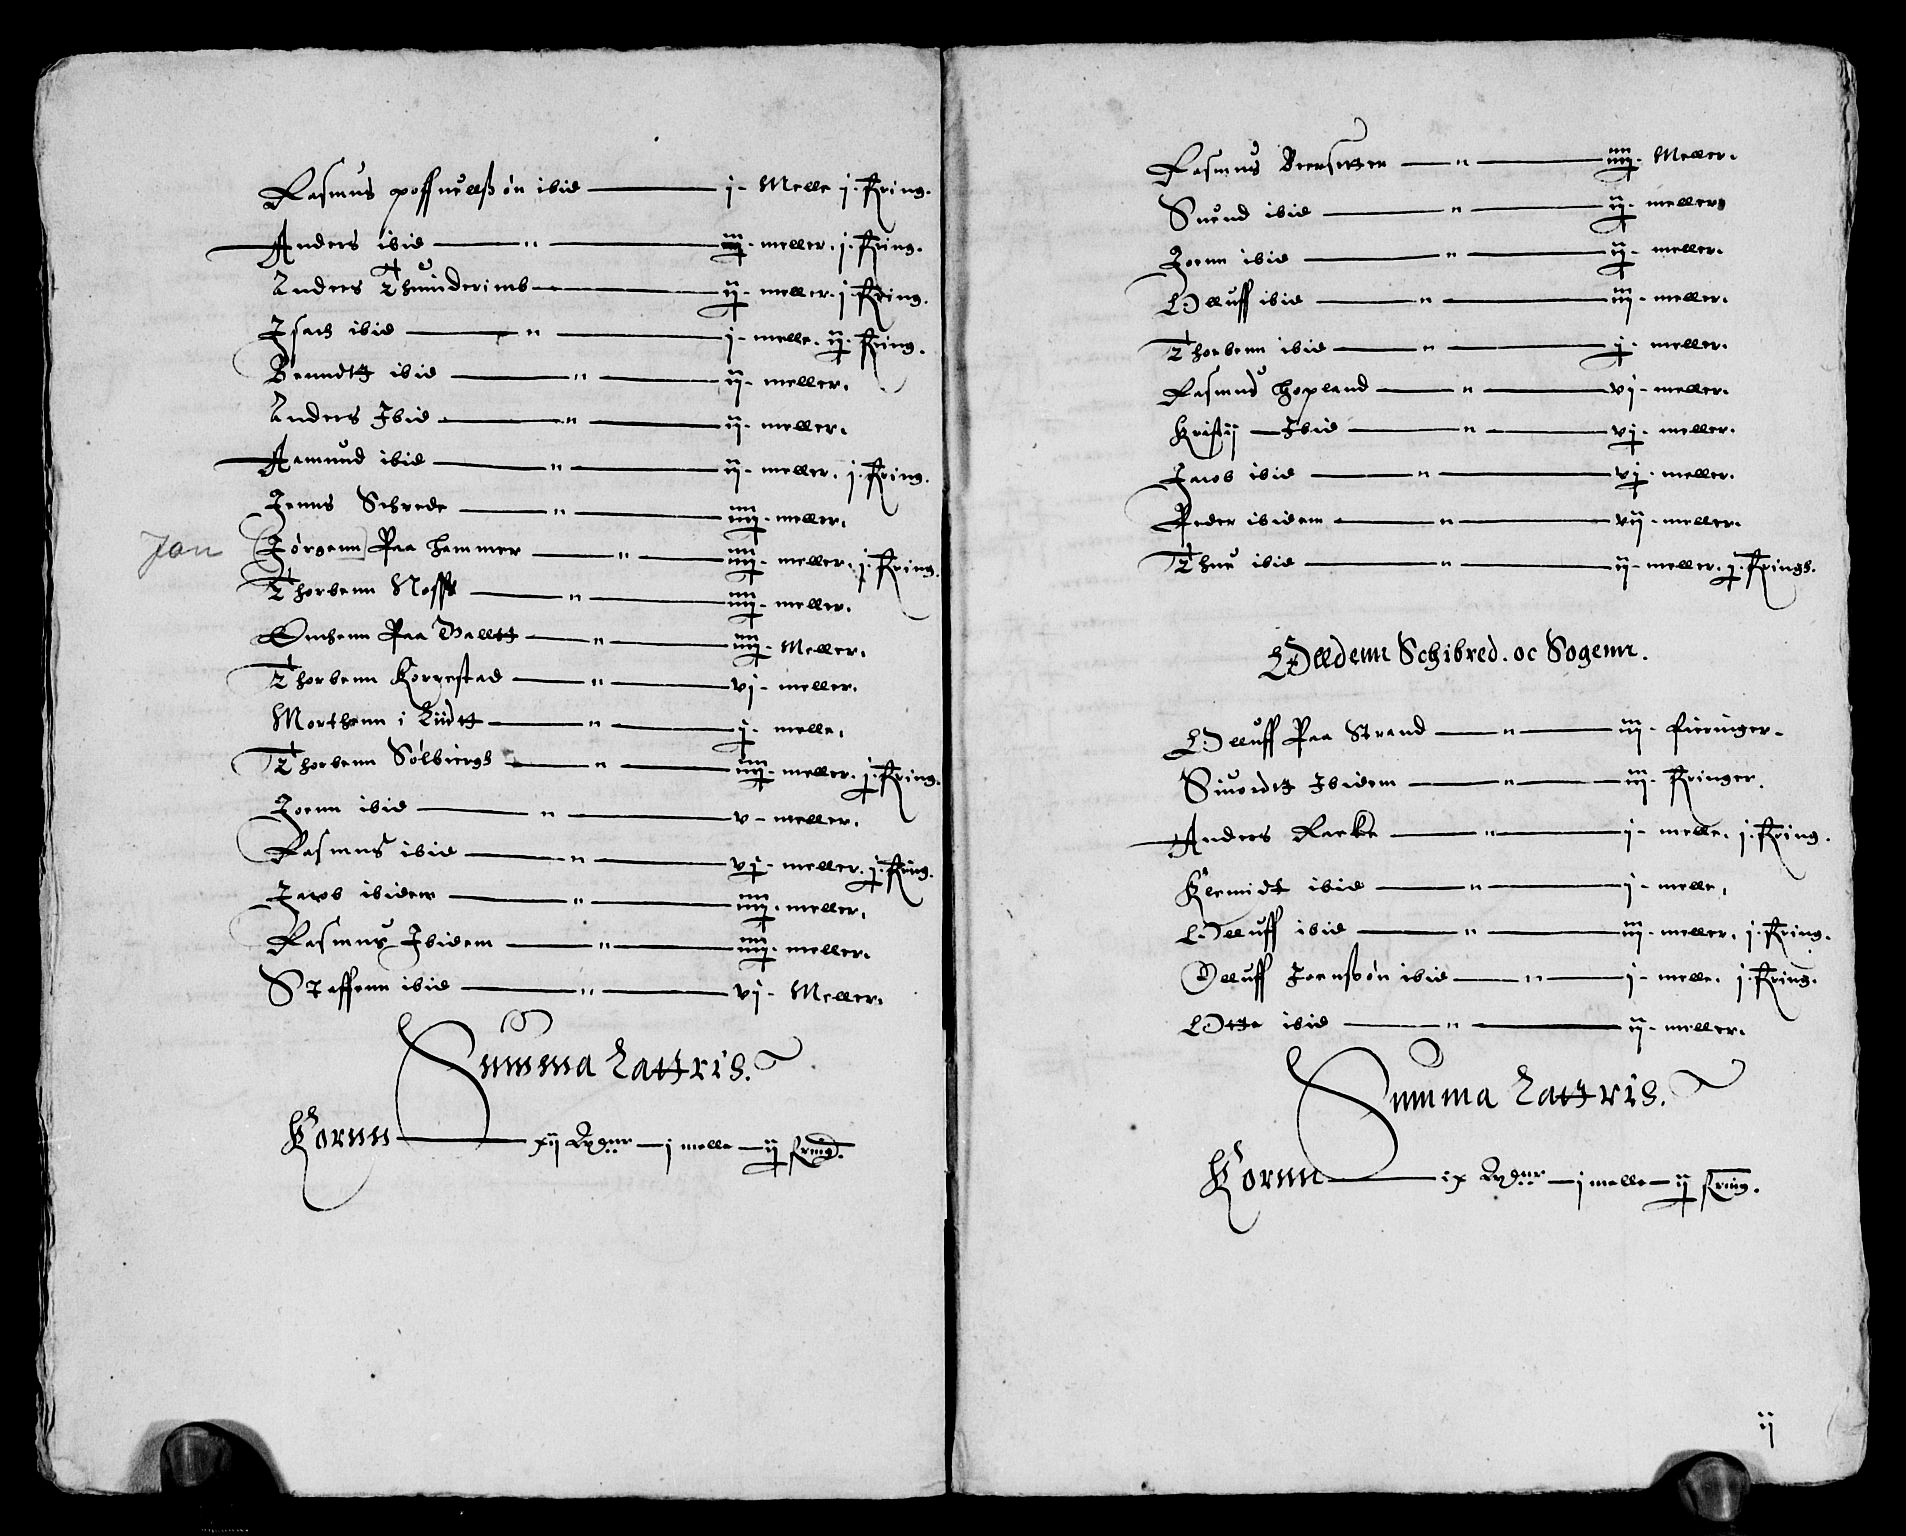 Rasmus poffuelsøn ibid — j - Melle j. Fring.
Anders ibid — " — iij - meller. j. Fring.
Anders Thuinderimb — ij - meller. j. Fring.
Isach ibid — " — j - melle. ij. Fring.
Benndtt ibid — " — ij - meller.
Anders Ibid — " — ij - meller.
Aamund ibid — " — ij - meller. j. Fring.
Jenns Schrede — " — iiij - meller.
Jan Jørgenn Paa hammer — " — iiij - meller. j. Fring.
Thorbenn — " — iiij - meller.
Omhenn Paa Valltt — " — iiij - Meller.
Thorbenn Korrestad — " — vj - meller.
Morthenn i Liidtt — " — j - melle.
Thorbenn Sølbiergh — " — iiij - meller. j. Fring.
Joenn ibid — " — v - meller.
Rasmus ibid — " — vj - meller. j. Fring.
Jacob ibidem — " — iiij - meller.
Rasmus Ibidem — " — iiij - meller.
Staffenn ibid — " — vj - Meller.
Summa Lattris.
Kornn — xij — j melle — ij fring.
Rasmus Beersetter — " — iiij - Meller.
Suend ibid — " — ij - meller
Joenn ibid — " — ij - meller.
Olluff ibid — " — iij - meller.
Thorbenn ibid — " — j - meller.
Rasmus hopland — " — vj - meller.
Kristij — Ibid — " — vj - meller.
Jacob ibid — " — vj - meller.
Peder ibidem — " — vij - meller.
Thue ibid — " — ij - meller. j. Fringh.
Olldenn Schibred. oc Sogenn.
Olluff Paa Strand — " — iij - fieringer.
Siuordtt Ibidem — " — iij - Fringer.
Anders Raeke — " — j - melle. j. Fring.
Klemidt ibid — " — j - melle.
Olluff ibid — " — iij - meller. j. Fring.
Olluff Joensøn ibid — " — j - melle. j. Fring.
Otte ibid — " — ij - meller.
Summa Lattris.
Kornn — ix — j melle — ij fring.
ij